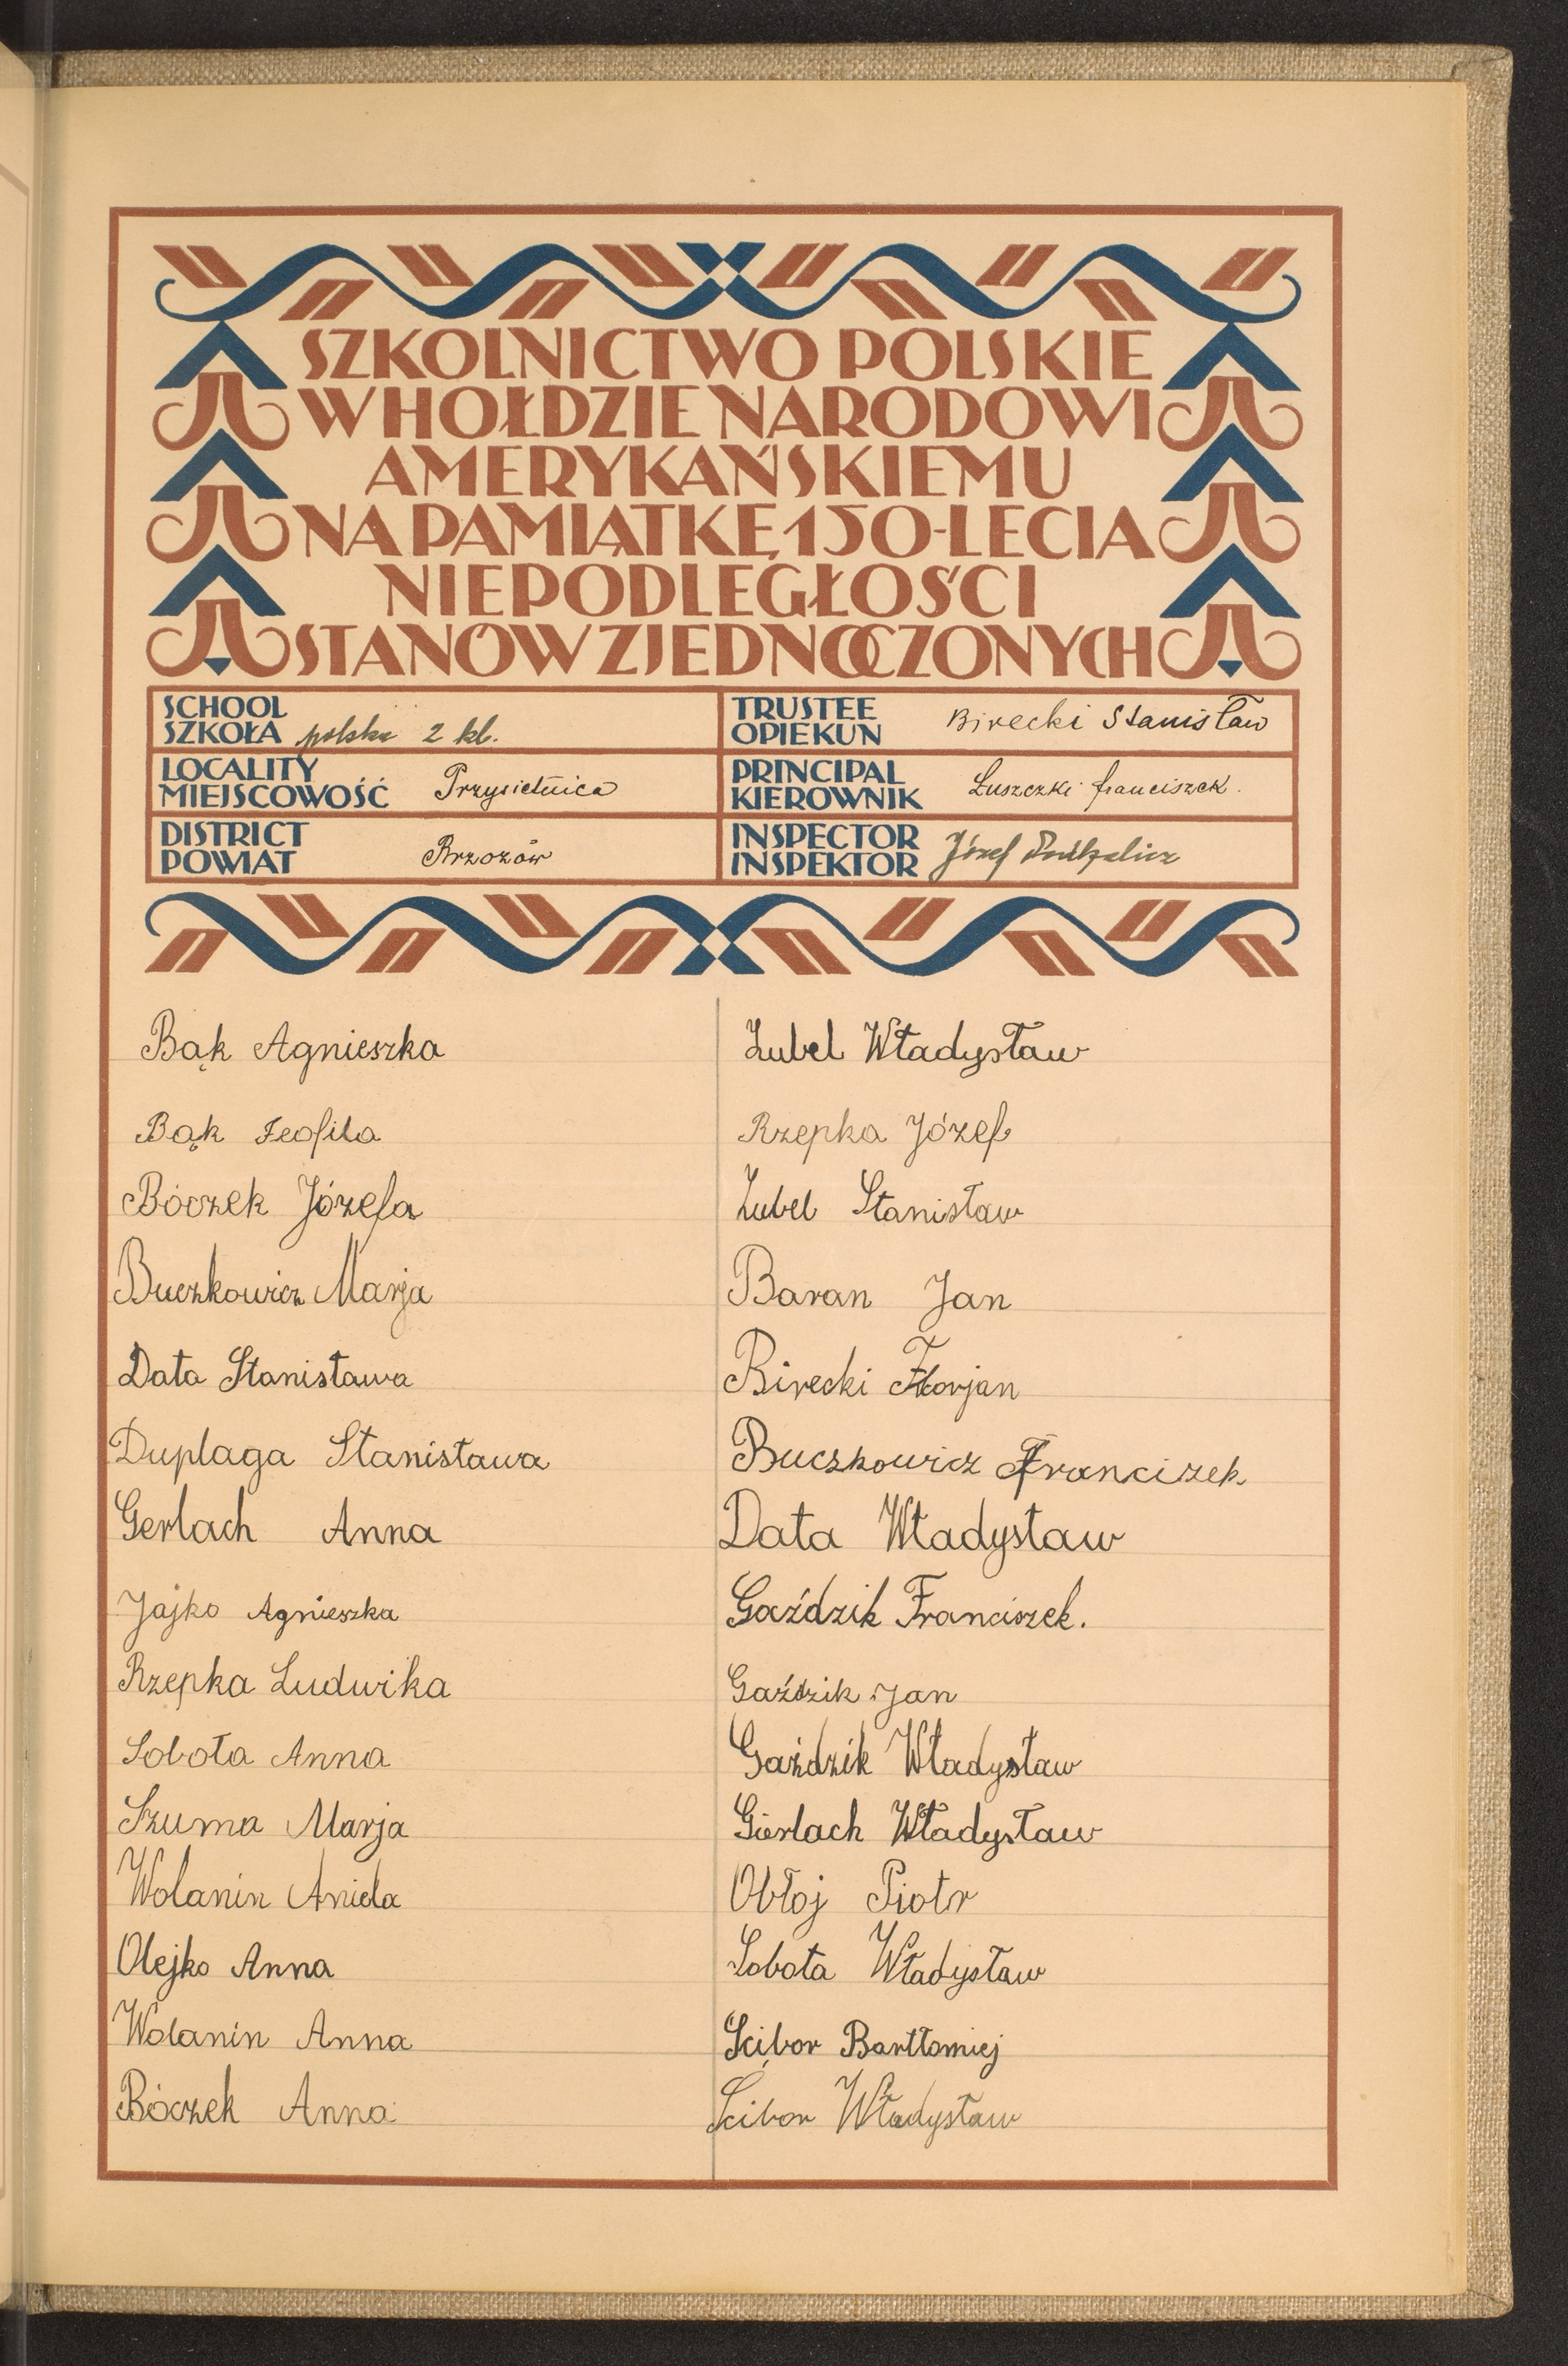 SZKOLNICTWO POLSKIE
W HOŁDZIE NARODOWI
AMERYKAŃSKIEMU
NA PAMIĄTKĘ 150-LECIA
NIEPODLEGŁOŚCI
STANÓW ZJEDNOCZONYCH
SCHOOL
SZKOŁA polska 2 kl.
TRUSTEE
OPIEKUN Birecki Stanisław
LOCALITY
MIEJSCOWOŚĆ Przysietnica
PRINCIPAL
KIEROWNIK Łuszczki franciszek.
DISTRICT
POWIAT Brzozów
INSPECTOR
INSPEKTOR Józef
Bąk Agnieszka
Bąk Teofila
Bóczek Józefa
Buczkowicz Marja
Data Stanisława
Duplaga Stanisława
Gerlach Anna
Jajko Agnieszka
Rzepka Ludwika
Sobota Anna
Szuma Marja
Wolanin Aniela
Olejko Anna
Wolanin Anna
Bóczek Anna
Lubel Władysław
Rzepka Józef
Lubel Stanisław
Baran Jan
Birecki Florjan
Buczkowicz Franciszek
Data Władysław
Gaździk Franciszek.
Gaździk Jan
Gaździk Władysław
Gierlach Władysław
Obłoj Piotr
Sobota Władysław
Scibor Bartłomiej
Scibor Władysław